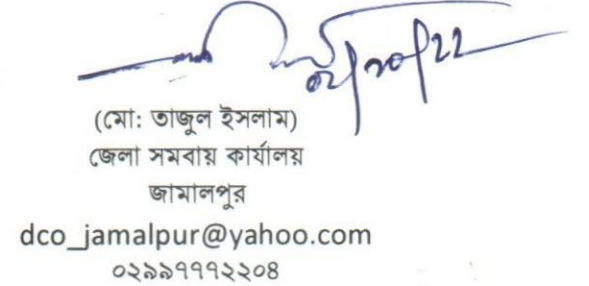 ০২/১০/২২
(মো: তাজুল ইসলাম)
জেলা সমবায় কার্যালয়
জামালপুর
dco_jamalpur@yahoo.com
০২৯৯৭৭৭২২০৪